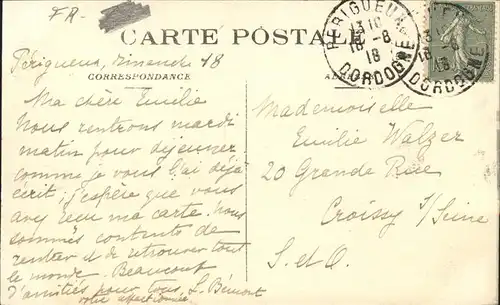 FR-
CARTE POSTALE
Périgueux, Dimanche 18
CORRESPONDANCE
PERIGUEUX
13 10
18 -8
18
DORDOGNE
DORDOGNE
Ma chère Emilie
Nous rentrons mardi
matin pour déjeuner
comme je vous l'ai déjà
écrit; j'espère que vous
avez reçu ma carte. Nous
sommes contents de
rentrer et de retrouver tout
le monde. Beaucoup
d'amitiés pour tous,
votre affectionnée
Mademoiselle
Emilie Walzer
20 Grande Rue
Croissy s/Seine
S. et O.